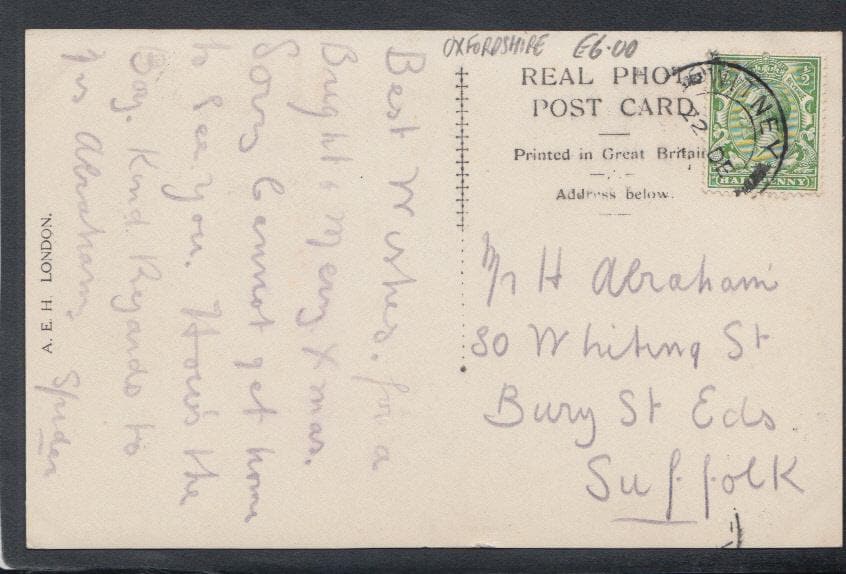 OXFORDSHIRE £6.00
REAL PHOTO
POST CARD
Printed in Great Britain
Address below.
WITNEY
22 DE
HALFPENNY
Mr H Abraham
80 Whiting St
Bury St Eds
Suffolk
Best Wishes. for a
Bright & Merry Xmas.
Sorry I cannot get home
to see you. How's the
Boy. Kind Regards to
Mrs Abraham.
Spider
A. E. H. LONDON.